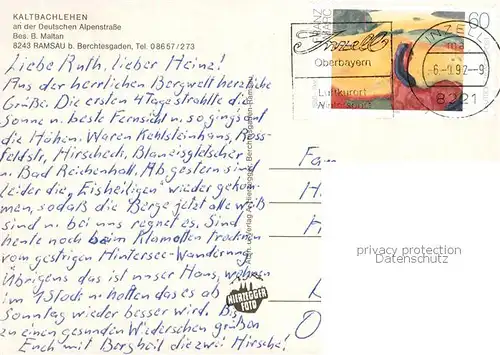 KALTBACHLEHEN
an der Deutschen Alpenstraße
Bes. B. Maltan
8243 RAMSAU b. Berchtesgaden, Tel. 08657/273
Liebe Ruth, lieber Heinz!
Aus der herrlichen Bergwelt herzliche
Grüße. Die ersten 4 Tage strahlte die
Sonne u. beste Fernsicht u. so ging's auf
die Höhen. Waren Kehlsteinhaus, Ross-
feldstr, Hirscheck, Blaueisgletscher
u. Bad Reichenhall. Ab gestern sind
leider die „Eisheiligen" wieder gekom-
men, sodaß die Berge jetzt alle weiß
sind u. bei uns regnet es. Sind
heute noch beim Klamotten trocknen
vom gestrigen Hintersee-Wanderung.
Übrigens das ist unser Haus, wohnen
im 1 Stock u. hoffen das es ab
Sonntag wieder besser wird. Bis
zu einen gesunden Wiedersehen grüßen
Euch mit Bergheil die zwei Hirsche!
FRANZ MARC
60
Inzell
Oberbayern
Luftkurort
Wintersport
INZELL
-9
8221
Fa
H
O
HIRNEGGER
FOTO
privacy protection
Datenschutz